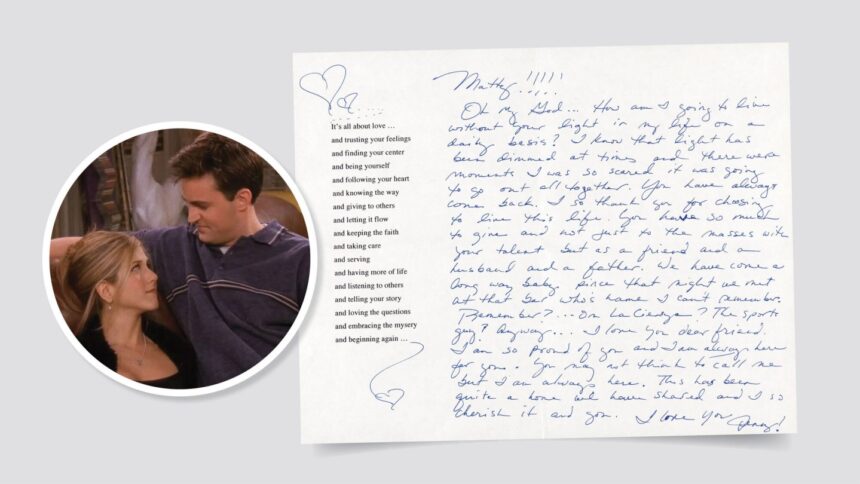 It's all about love ...
and trusting your feelings
and finding your center
and being yourself
and following your heart
and knowing the way
and giving to others
and letting it flow
and keeping the faith
and taking care
and serving
and having more of life
and listening to others
and telling your story
and loving the questions
and embracing the mysery
and beginning again ...
Matty!!!!!
Oh my God... How am I going to live
without your light in my life on a
daily basis? I know that light has
been dimmed at times and there were
moments I was so scared it was going
to go out all together. You have always
come back. I so thank you for choosing
to live this life. You have so much
to give and not just to the masses with
your talent but as a friend and a
husband and a father. We have come a
long way baby. Since that night we met
at that bar who's name I can't remember.
Remember?... On La Cienega? The sports
guy? Anyway... I love you dear friend.
I am so proud of you and I am always here
for you. You may not think to call me
but I am always here. This has been
quite a home we have shared and I so
cherish it and you. I love you
Jenny!